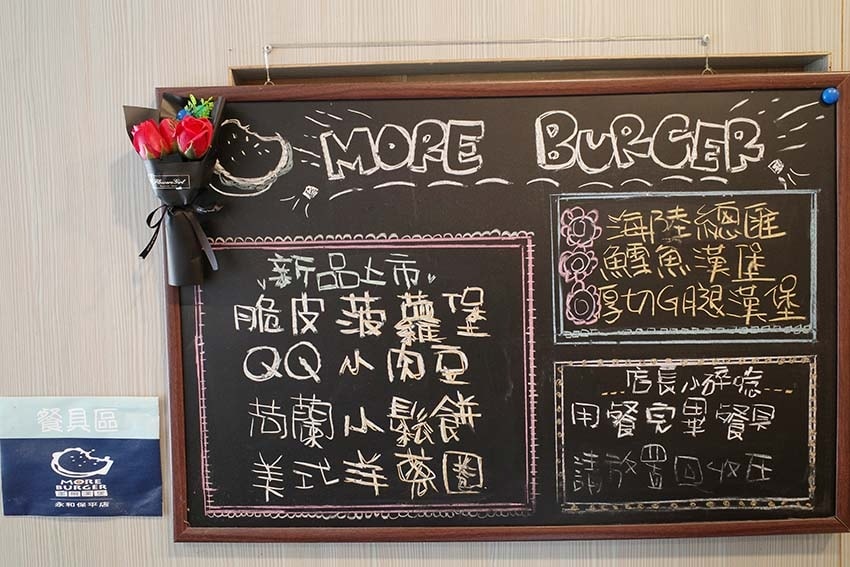 MORE BURGER
新品上市
脆皮菠蘿堡
QQ小肉豆
荷蘭小鬆餅
美式洋蔥圈
海陸總匯
鱈魚漢堡
厚切G腿漢堡
店長小碎唸
用餐完畢餐具
請放置回收區
餐具區
MORE
BURGER
永和保平店